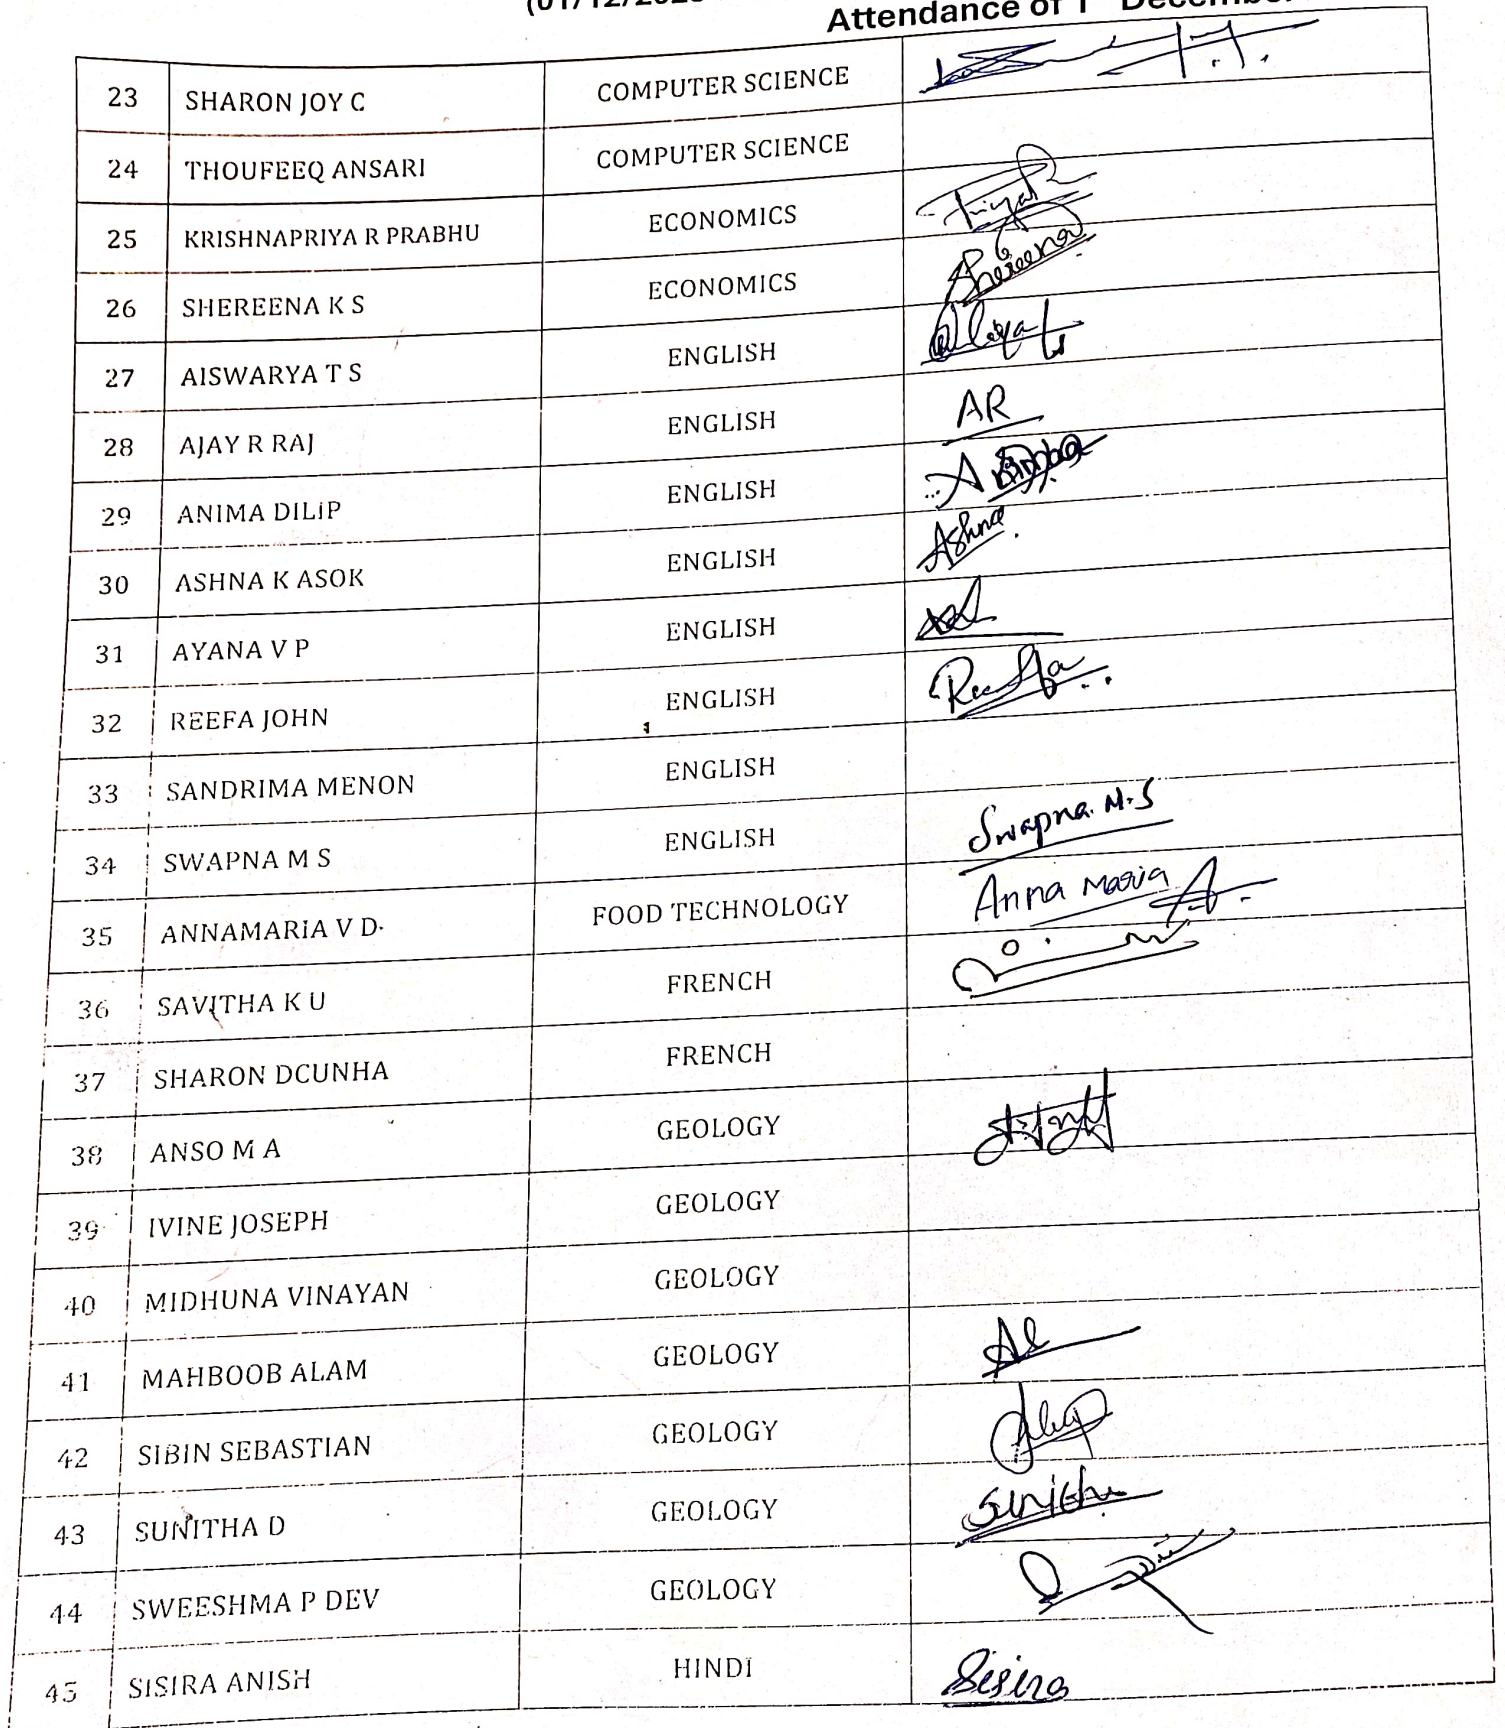 (01/12/2025
Attendance of 1st December
23 SHARON JOY C COMPUTER SCIENCE
24 THOUFEEQ ANSARI COMPUTER SCIENCE
25 KRISHNAPRIYA R PRABHU ECONOMICS
26 SHEREENA K S ECONOMICS Shereena
27 AISWARYA T S ENGLISH
28 AJAY R RAJ ENGLISH AR
29 ANIMA DILIP ENGLISH
30 ASHNA K ASOK ENGLISH Ashna
31 AYANA V P ENGLISH
32 REEFA JOHN ENGLISH Reefa
33 SANDRIMA MENON ENGLISH
34 SWAPNA M S ENGLISH Swapna M.S
35 ANNAMARIA V D FOOD TECHNOLOGY Anna Maria
36 SAVITHA K U FRENCH
37 SHARON DCUNHA FRENCH
38 ANSO M A GEOLOGY
39 IVINE JOSEPH GEOLOGY
40 MIDHUNA VINAYAN GEOLOGY
41 MAHBOOB ALAM GEOLOGY
42 SIBIN SEBASTIAN GEOLOGY
43 SUNITHA D GEOLOGY Sunitha
44 SWEESHMA P DEV GEOLOGY
45 SISIRA ANISH HINDI Sisira